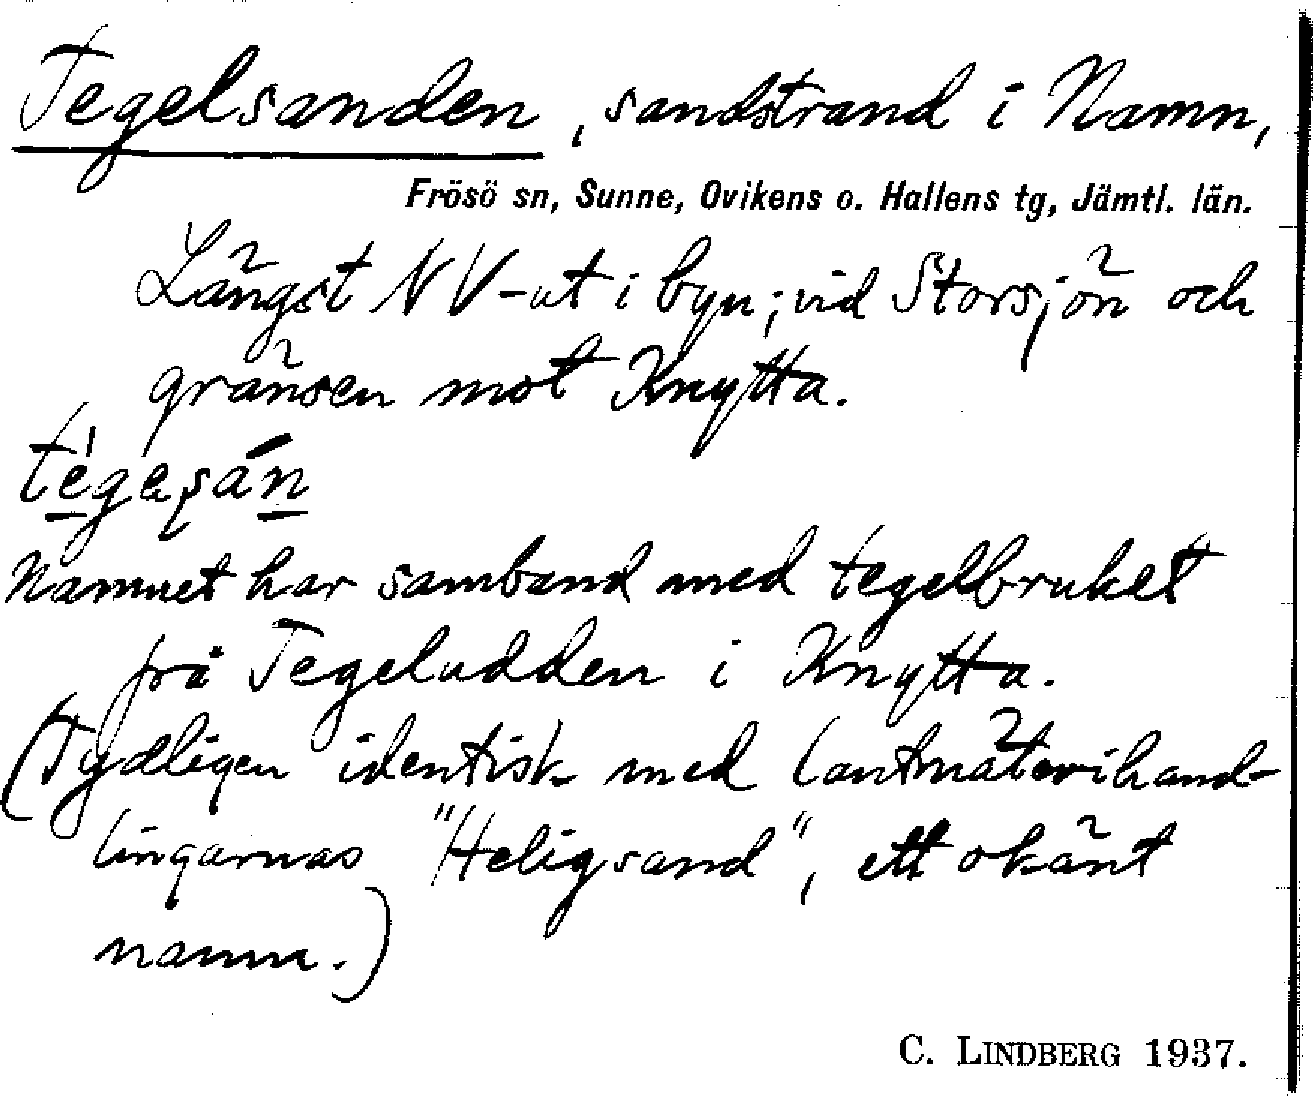 Tegelsanden, sandstrand i Namn,
Frösö sn, Sunne, Ovikens o. Hallens tg, Jämtl. län.
Längst NV-ut i byn; vid Storsjön och
gränsen mot Knytta.
Namnet har samband med tegelbruket
på Tegeludden i Knytta.
(Tydligen identisk med lantmäterihand-
lingarnas "Heligsand", ett okänt
namn.)
C. LINDBERG 1937.